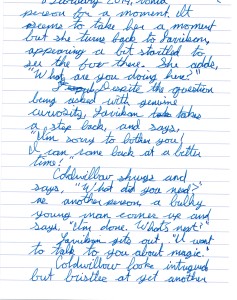 February 2019, Vonda
person for a moment. It
seems to take her a moment
but she turns back to Larrikan,
appearing a bit startled to
see the boy there. She adds,
"What are you doing here?"
Despite the question
being asked with genuine
curiosity, Larrikan takes
a step back, and says,
"I'm sorry to bother you!
I can come back at a better
time!"
Coldwillow shrugs and
says, "What did you need?"
as another person a bulky
young man comes up and
says, "I'm done. What's next?"
Larrikan gets out, "I want
to talk to you about magic."
Coldwillow looks intrigued
but bristles at yet another